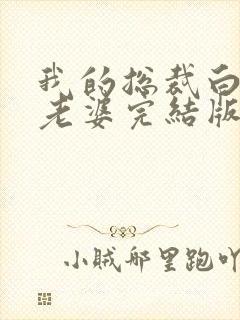 我的总裁白
老婆完結版
小贼那里跑吖